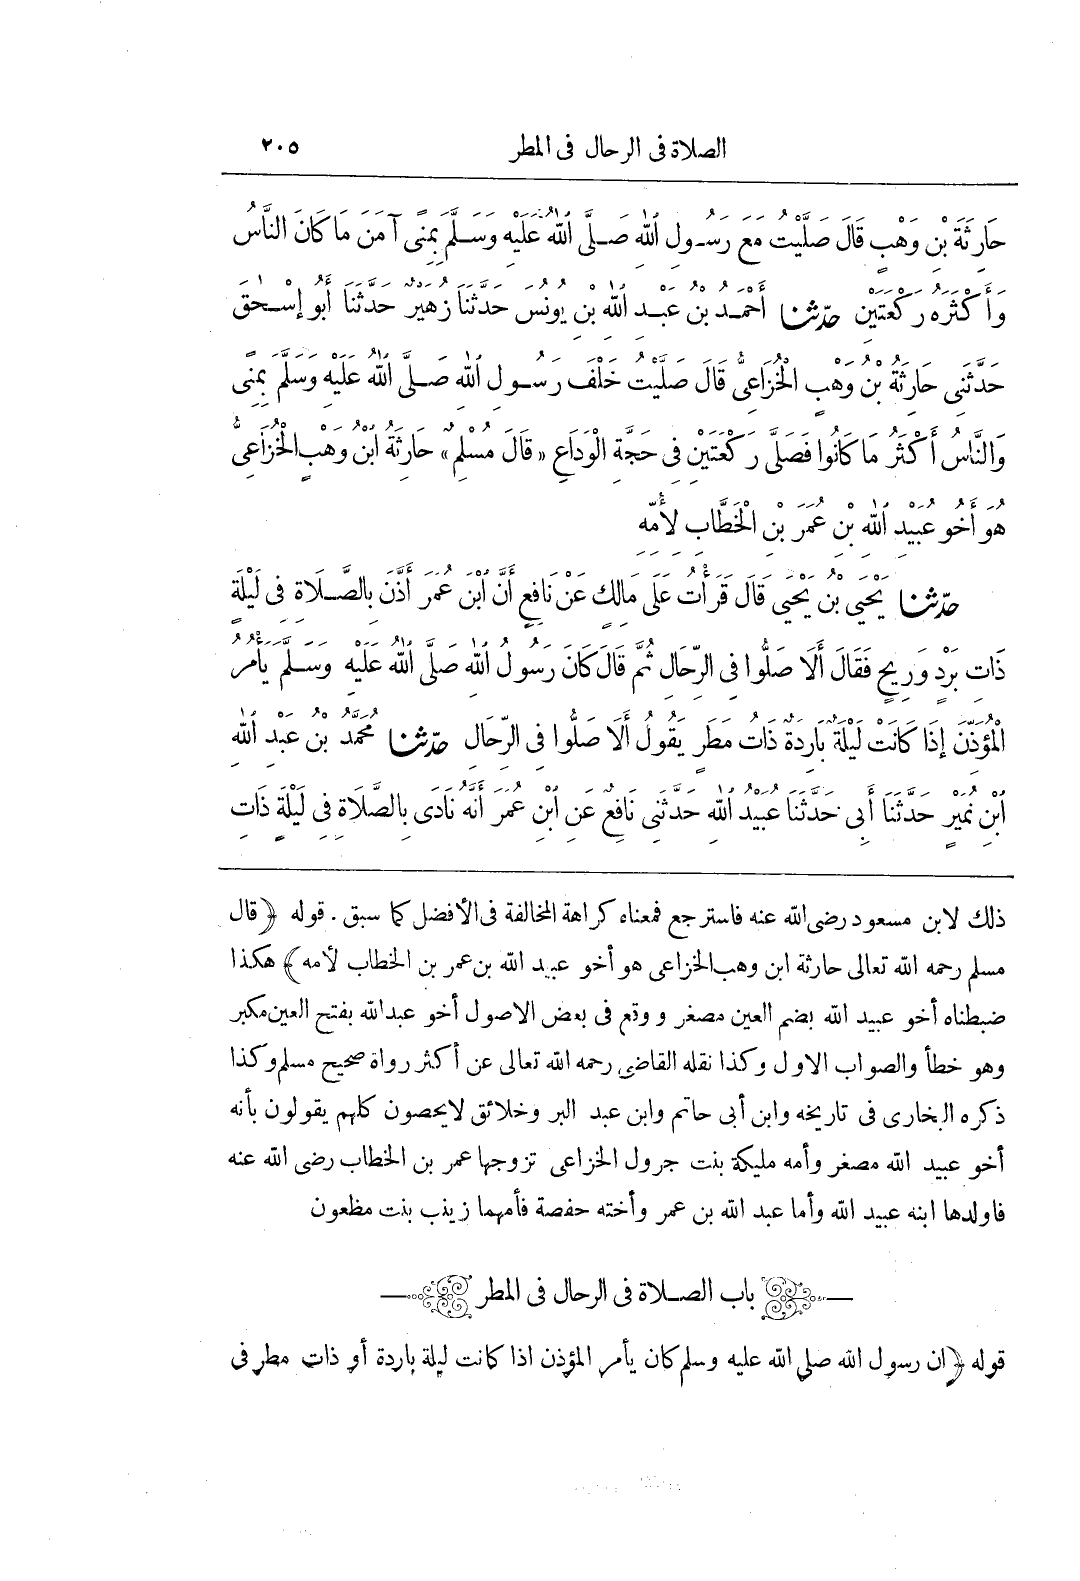 الصلاة فى الرحال فى المطر ٢٠٥
حَارِثَةَ بْنِ وَهْبٍ قَالَ صَلَّيْتُ مَعَ رَسُولِ اللهِ صَلَّى اللهُ عَلَيْهِ وَسَلَّمَ بِمِنًى آمَنَ مَا كَانَ النَّاسُ
وَأَكْثَرُهُ رَكْعَتَيْنِ حدّثنا أَحْمَدُ بْنُ عَبْدِ اللهِ بْنِ يُونُسَ حَدَّثَنَا زُهَيْرٌ حَدَّثَنَا أَبُو إِسْحٰقَ
حَدَّثَنِى حَارِثَةُ بْنُ وَهْبٍ الْخُزَاعِىُّ قَالَ صَلَّيْتُ خَلْفَ رَسُولِ اللهِ صَلَّى اللهُ عَلَيْهِ وَسَلَّمَ بِمِنًى
وَالنَّاسُ أَكْثَرُ مَا كَانُوا فَصَلَّى رَكْعَتَيْنِ فِى حَجَّةِ الْوَدَاعِ «قَالَ مُسْلِمٌ» حَارِثَةُ ابْنُ وَهْبٍ الْخُزَاعِىُّ
هُوَ أَخُو عُبَيْدِ اللهِ بْنِ عُمَرَ بْنِ الْخَطَّابِ لِأُمِّهِ
حدّثنا يَحْيَى بْنُ يَحْيَى قَالَ قَرَأْتُ عَلَى مَالِكٍ عَنْ نَافِعٍ أَنَّ ابْنَ عُمَرَ أَذَّنَ بِالصَّلَاةِ فِى لَيْلَةٍ
ذَاتِ بَرْدٍ وَرِيحٍ فَقَالَ أَلَا صَلُّوا فِى الرِّحَالِ ثُمَّ قَالَ كَانَ رَسُولُ اللهِ صَلَّى اللهُ عَلَيْهِ وَسَلَّمَ يَأْمُرُ
الْمُؤَذِّنَ إِذَا كَانَتْ لَيْلَةٌ بَارِدَةٌ ذَاتُ مَطَرٍ يَقُولُ أَلَا صَلُّوا فِى الرِّحَالِ حدّثنا مُحَمَّدُ بْنُ عَبْدِ اللهِ
ابْنِ نُمَيْرٍ حَدَّثَنَا أَبِى حَدَّثَنَا عُبَيْدُ اللهِ حَدَّثَنِى نَافِعٌ عَنِ ابْنِ عُمَرَ أَنَّهُ نَادَى بِالصَّلَاةِ فِى لَيْلَةٍ ذَاتِ
ذلك لابن مسعود رضى الله عنه فاسترجع فمعناه كراهة المخالفة فى الأفضل كما سبق . قوله ﴿قال
مسلم رحمه الله تعالى حارثة ابن وهب الخزاعى هو أخو عبيد الله بن عمر بن الخطاب لأمه﴾ هكذا
ضبطناه أخو عبيد الله بضم العين مصغر ووقع فى بعض الاصول أخو عبد الله بفتح العين مكبر
وهو خطأ والصواب الاول وكذا نقله القاضى رحمه الله تعالى عن أكثر رواة صحيح مسلم وكذا
ذكره البخارى فى تاريخه وابن أبى حاتم وابن عبد البر وخلائق لايحصون كلهم يقولون بأنه
أخو عبيد الله مصغر وأمه مليكة بنت جرول الخزاعى تزوجها عمر بن الخطاب رضى الله عنه
فاولدها ابنه عبيد الله وأما عبد الله بن عمر وأخته حفصة فأمهما زينب بنت مظعون
باب الصلاة فى الرحال فى المطر
قوله ﴿ان رسول الله صلى الله عليه وسلم كان يأمر المؤذن اذا كانت ليلة باردة أو ذات مطر فى